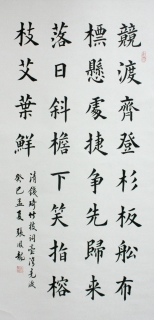 競渡齊登杉板舩布
標懸處捷争先歸来
落日斜檐下笑指榕
枝艾葉鮮
清錢琦竹枝詞臺灣
癸巳孟夏張